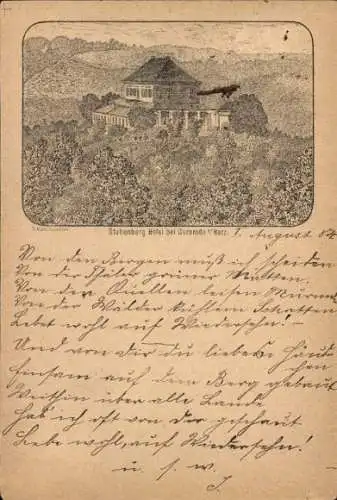 Stubenberg Hôtel bei Gernrode i/Harz.
1. August 84
Von den Bergen muß ich scheiden
Von der Thäler grüner Matten
Von der Quellen leisen Murmeln
Von der Wälder kühlem Schatten
Lebet wohl auf Wiedersehn! –
Und von dir du liebes Häus-
chen
Einsam auf dem Berg gebaut
Weithin über alle Lande
Hab' ich oft von dir geschaut
Lebe wohl, auf Wiedersehn!
u. s. w.
J.